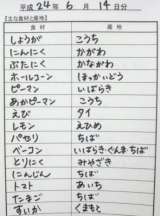 平成 24年 6月 14日分
【主な食材と産地】
食材 産地
しょうが こうち
にんにく かがわ
ぶたにく かながわ
ホールコーン ほっかいどう
ピーマン いばらき
あかピーマン こうち
えび タイ
レモン えひめ
パセリ ちば
ベーコン いばらき・ぐんま・ちば
とりにく みやざき
にんじん ちば
トマト あいち
たまご ちば
すいか くまもと